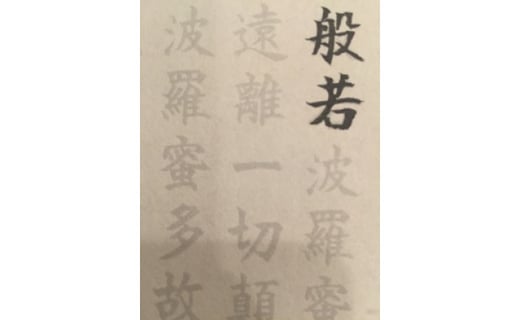 般若波羅蜜
遠離一切顛
波羅蜜多故